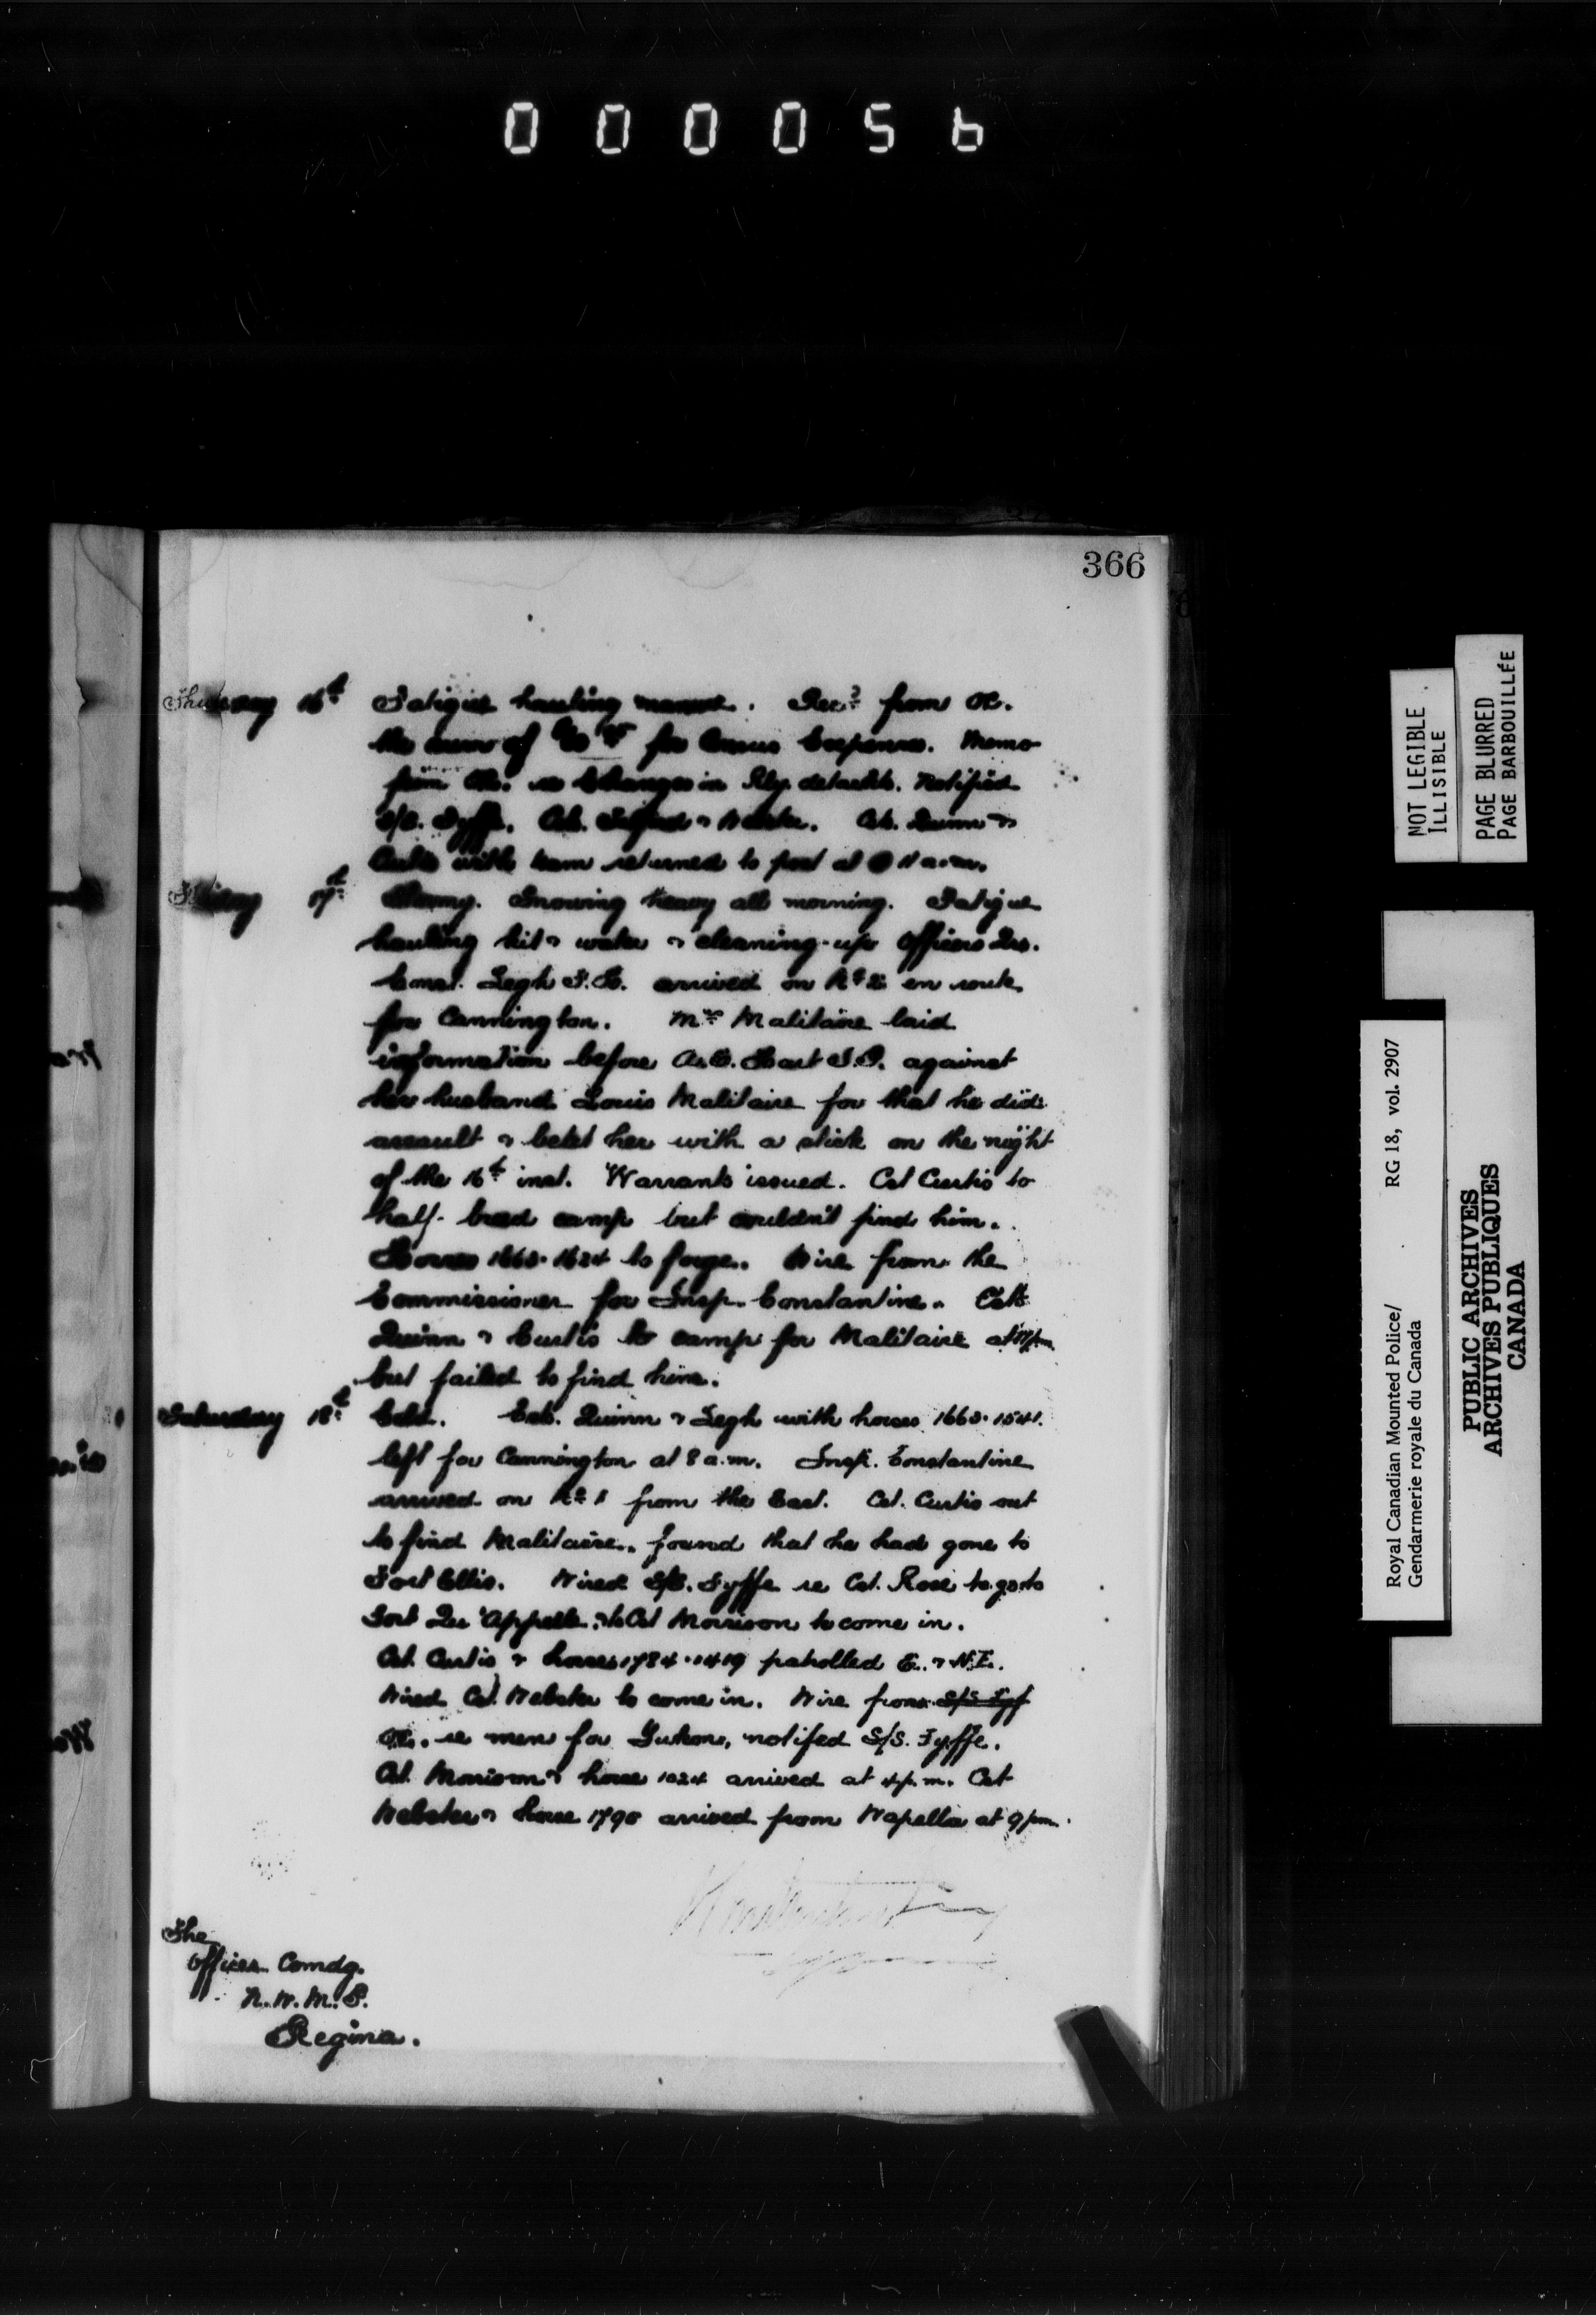 000056
366
Thursday 16th Fatigue hauling manure. Recd from OC.
the sum of for Census Expenses. Memo
from OC. re Changes in Rly. detachts. Notified
S/S. Fyffe, Csts. & Webster. Cst. Quinn &
Curtis with team returned to post at 11 a.m.
Friday 17th Stormy. Snowing heavy all morning. Fatigue
hauling kit & water & cleaning-up Officers Qrs.
Const. Legh F.H. arrived on No 2 en route
for Cannington. Mrs Malitaire laid
information before Hart J.P. against
her husband Louis Malitaire for that he did
assault & beat her with a stick on the night
of the 16th inst. Warrants issued. Cst Curtis to
half-breed camp but couldn't find him.
Horses 1660. 1624 to forge. Wire from the
Commissioner for Insp. Constantine. Csts
Quinn & Curtis to camp for Malitaire at
but failed to find him.
Saturday 18th Cold. Csts. Quinn & Legh with horses 1660. 1541.
left for Cannington at 8 a.m. Insp. Constantine
arrived on No 1 from the East. Cst. Curtis out
to find Malitaire, found that he had gone to
Fort Ellis. Wired S/S. Fyffe re Cst. Rose to go to
Fort Qu'Appelle, & Cst Morrison to come in.
Cst. Curtis & horses 1784. 1419 patrolled E. & N.E.
Wired Cst. Webster to come in. Wire from S/S Fyf
OC. re men for Yukon, notifed S/S. Fyffe.
Cst. Morrison & horse 1024 arrived at 4 p.m. Cst
Webster & horse 1790 arrived from Wapella at 9 pm.
The
Officer Comdg.
N.W.M.P.
Regina.
NOT LEGIBLE
ILLISIBLE
PAGE BLURRED
PAGE BARBOUILLÉE
Royal Canadian Mounted Police/ RG 18, vol. 2907
Gendarmerie royale du Canada
PUBLIC ARCHIVES
ARCHIVES PUBLIQUES
CANADA